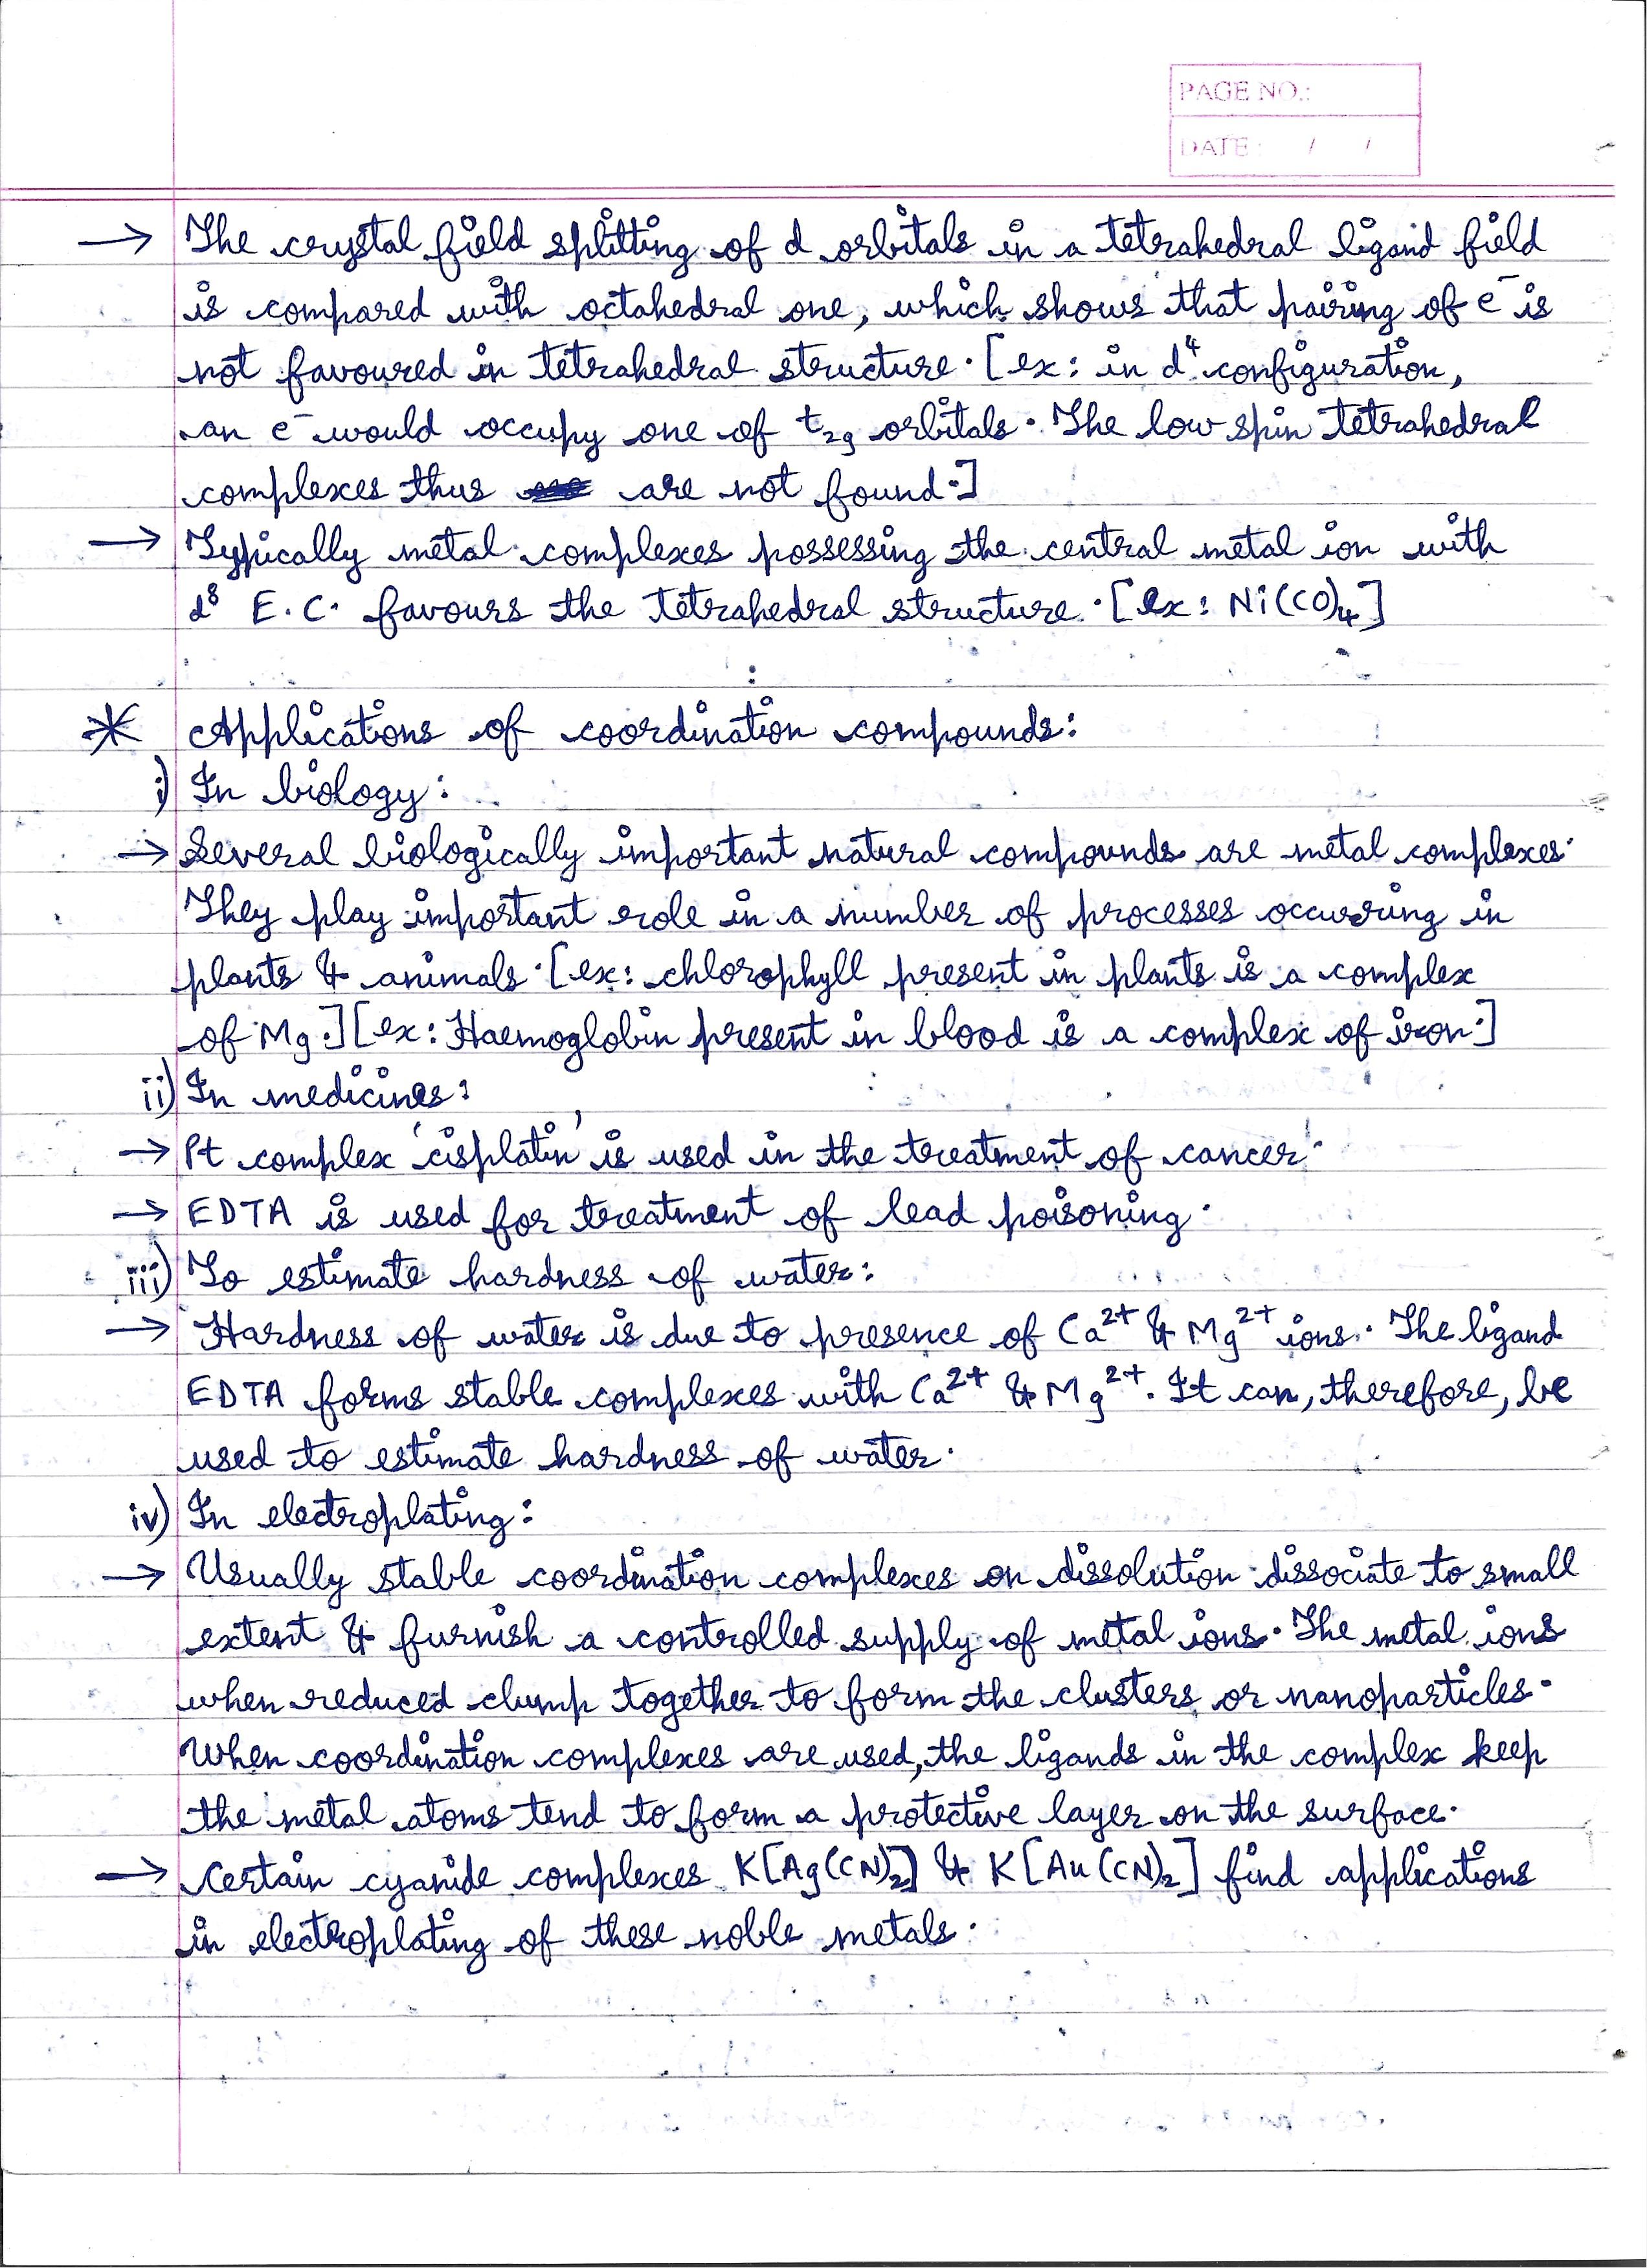 PAGE NO.:
DATE: / /
→ The crystal field splitting of d orbitals in a tetrahedral ligand field
is compared with octahedral one, which shows that pairing of e⁻ is
not favoured in tetrahedral structure. [ex: in d⁴ configuration,
an e⁻ would occupy one of t₂g orbitals. The low spin tetrahedral
complexes thus are not found.]
→ Typically metal complexes possessing the central metal ion with
d⁸ E.C. favours the tetrahedral structure. [ex: Ni(CO)₄]
* Applications of coordination compounds:
i) In biology:
→ Several biologically important natural compounds are metal complexes.
They play important role in a number of processes occurring in
plants & animals. [ex: chlorophyll present in plants is a complex
of Mg.] [ex: Haemoglobin present in blood is a complex of iron.]
ii) In medicines:
→ Pt complex 'cisplatin' is used in the treatment of cancer.
→ EDTA is used for treatment of lead poisoning.
iii) To estimate hardness of water:
→ Hardness of water is due to presence of Ca²⁺ & Mg²⁺ ions. The ligand
EDTA forms stable complexes with Ca²⁺ & Mg²⁺. It can, therefore, be
used to estimate hardness of water.
iv) In electroplating:
→ Usually stable coordination complexes on dissolution dissociate to small
extent & furnish a controlled supply of metal ions. The metal ions
when reduced clump together to form the clusters or nanoparticles.
When coordination complexes are used, the ligands in the complex keep
the metal atoms tend to form a protective layer on the surface.
→ Certain cyanide complexes K[Ag(CN)₂] & K[Au(CN)₂] find applications
in electroplating of these noble metals.